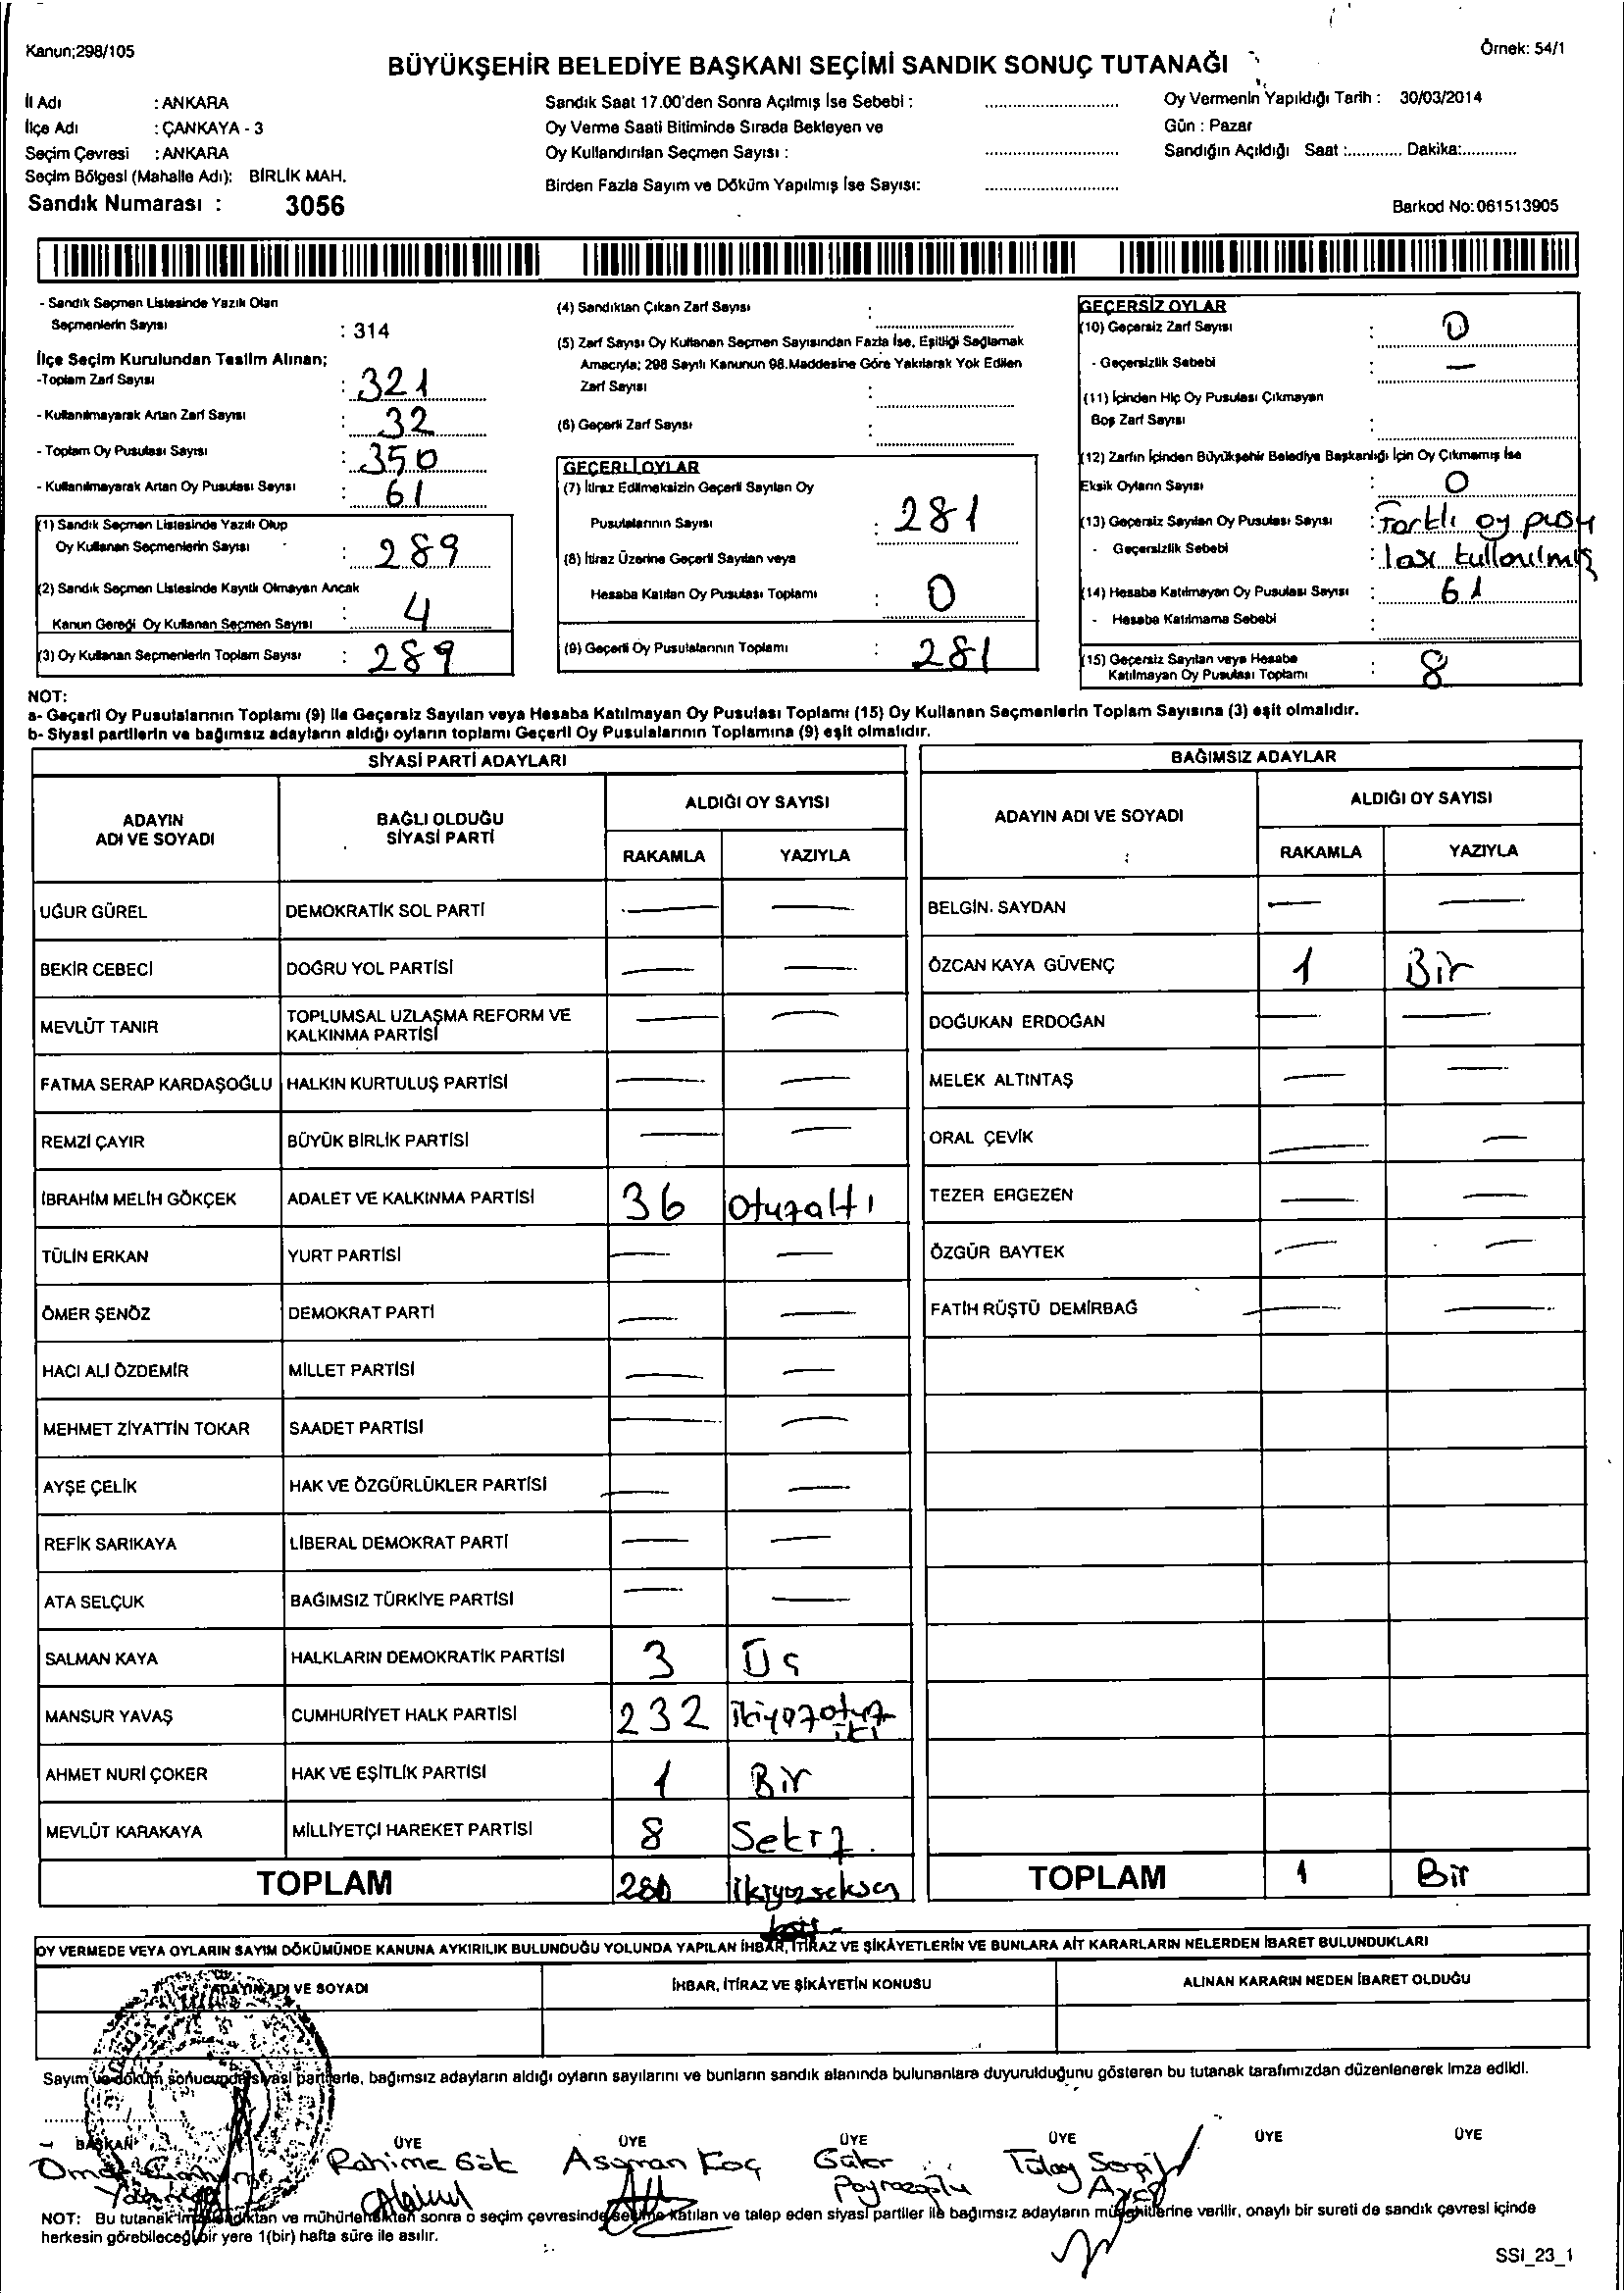 Kanun;298/105
Örnek: 54/1
BÜYÜKŞEHİR BELEDİYE BAŞKANI SEÇİMİ SANDIK SONUÇ TUTANAĞI
İl Adı : ANKARA
İlçe Adı : ÇANKAYA - 3
Seçim Çevresi : ANKARA
Seçim Bölgesi (Mahalle Adı): BİRLİK MAH.
Sandık Numarası : 3056
Sandık Saat 17.00'den Sonra Açılmış İse Sebebi :
Oy Verme Saati Bitiminde Sırada Bekleyen ve
Oy Kullandırılan Seçmen Sayısı :
Birden Fazla Sayım ve Döküm Yapılmış İse Sayısı:
Oy Vermenin Yapıldığı Tarih : 30/03/2014
Gün : Pazar
Sandığın Açıldığı Saat :............ Dakika:............
Barkod No:061513905
- Sandık Seçmen Listesinde Yazılı Olan
Seçmenlerin Sayısı : 314
İlçe Seçim Kurulundan Teslim Alınan;
-Toplam Zarf Sayısı : 321
- Kullanılmayarak Artan Zarf Sayısı : 32
- Toplam Oy Pusulası Sayısı : 350
- Kullanılmayarak Artan Oy Pusulası Sayısı : 61
(1) Sandık Seçmen Listesinde Yazılı Olup
Oy Kullanan Seçmenlerin Sayısı : 289
(2) Sandık Seçmen Listesinde Kayıtlı Olmayan Ancak
Kanun Gereği Oy Kullanan Seçmen Sayısı : 4
(3) Oy Kullanan Seçmenlerin Toplam Sayısı : 289
(4) Sandıktan Çıkan Zarf Sayısı :
(5) Zarf Sayısı Oy Kullanan Seçmen Sayısından Fazla İse, Eşitliği Sağlamak
Amacıyla; 298 Sayılı Kanunun 98.Maddesine Göre Yakılarak Yok Edilen
Zarf Sayısı :
(6) Geçerli Zarf Sayısı :
GEÇERLİ OYLAR
(7) İtiraz Edilmeksizin Geçerli Sayılan Oy
Pusulalarının Sayısı : 281
(8) İtiraz Üzerine Geçerli Sayılan veya
Hesaba Katılan Oy Pusulası Toplamı : 0
(9) Geçerli Oy Pusulalarının Toplamı : 281
GEÇERSİZ OYLAR
(10) Geçersiz Zarf Sayısı : 0
- Geçersizlik Sebebi : —
(11) İçinden Hiç Oy Pusulası Çıkmayan
Boş Zarf Sayısı :
(12) Zarfın İçinden Büyükşehir Belediye Başkanlığı İçin Oy Çıkmamış İse
Eksik Oyların Sayısı : 0
(13) Geçersiz Sayılan Oy Pusulası Sayısı : Farklı oy pusu
- Geçersizlik Sebebi : lası kullanılmış
(14) Hesaba Katılmayan Oy Pusulası Sayısı : 61
- Hesaba Katılmama Sebebi :
(15) Geçersiz Sayılan veya Hesaba
Katılmayan Oy Pusulası Toplamı : 8
NOT:
a- Geçerli Oy Pusulalarının Toplamı (9) ile Geçersiz Sayılan veya Hesaba Katılmayan Oy Pusulası Toplamı (15) Oy Kullanan Seçmenlerin Toplam Sayısına (3) eşit olmalıdır.
b- Siyasi partilerin ve bağımsız adayların aldığı oyların toplamı Geçerli Oy Pusulalarının Toplamına (9) eşit olmalıdır.
SİYASİ PARTİ ADAYLARI
ADAYIN
ADI VE SOYADI
BAĞLI OLDUĞU
SİYASİ PARTİ
ALDIĞI OY SAYISI
RAKAMLA YAZIYLA
UĞUR GÜREL DEMOKRATİK SOL PARTİ — —
BEKİR CEBECİ DOĞRU YOL PARTİSİ — —
MEVLÜT TANIR TOPLUMSAL UZLAŞMA REFORM VE
KALKINMA PARTİSİ — —
FATMA SERAP KARDAŞOĞLU HALKIN KURTULUŞ PARTİSİ — —
REMZİ ÇAYIR BÜYÜK BİRLİK PARTİSİ — —
İBRAHİM MELİH GÖKÇEK ADALET VE KALKINMA PARTİSİ 36 Otuzaltı
TÜLİN ERKAN YURT PARTİSİ — —
ÖMER ŞENÖZ DEMOKRAT PARTİ — —
HACI ALİ ÖZDEMİR MİLLET PARTİSİ — —
MEHMET ZİYATTİN TOKAR SAADET PARTİSİ — —
AYŞE ÇELİK HAK VE ÖZGÜRLÜKLER PARTİSİ — —
REFİK SARIKAYA LİBERAL DEMOKRAT PARTİ — —
ATA SELÇUK BAĞIMSIZ TÜRKİYE PARTİSİ — —
SALMAN KAYA HALKLARIN DEMOKRATİK PARTİSİ 3 Üç
MANSUR YAVAŞ CUMHURİYET HALK PARTİSİ 232 ikiyüzotuz
iki
AHMET NURİ ÇOKER HAK VE EŞİTLİK PARTİSİ 1 Bir
MEVLÜT KARAKAYA MİLLİYETÇİ HAREKET PARTİSİ 8 Sekiz.
TOPLAM 280 ikiyüzseksen
BAĞIMSIZ ADAYLAR
ADAYIN ADI VE SOYADI
ALDIĞI OY SAYISI
RAKAMLA YAZIYLA
BELGİN. SAYDAN — —
ÖZCAN KAYA GÜVENÇ 1 Bir
DOĞUKAN ERDOĞAN — —
MELEK ALTINTAŞ — —
ORAL ÇEVİK — —
TEZER ERGEZEN — —
ÖZGÜR BAYTEK — —
FATİH RÜŞTÜ DEMİRBAĞ — —
TOPLAM 1 Bir
OY VERMEDE VEYA OYLARIN SAYIM DÖKÜMÜNDE KANUNA AYKIRILIK BULUNDUĞU YOLUNDA YAPILAN İHBAR, İTİRAZ VE ŞİKÂYETLERİN VE BUNLARA AİT KARARLARIN NELERDEN İBARET BULUNDUKLARI
ADAYIN ADI VE SOYADI
İHBAR, İTİRAZ VE ŞİKÂYETİN KONUSU
ALINAN KARARIN NEDEN İBARET OLDUĞU
Sayım ve döküm sonucunda siyasi partilerle, bağımsız adayların aldığı oyların sayılarını ve bunların sandık alanında bulunanlara duyurulduğunu gösteren bu tutanak tarafımızdan düzenlenerek imza edildi.
BAŞKAN ÜYE ÜYE ÜYE ÜYE ÜYE ÜYE
Rahime Gök
Koç
Poyrazoğlu
Tülay
NOT: Bu tutanak imzalandıktan ve mühürlendikten sonra o seçim çevresinde seçime katılan ve talep eden siyasi partiler ile bağımsız adayların müşahitlerine verilir, onaylı bir sureti de sandık çevresi içinde
herkesin görebileceği bir yere 1(bir) hafta süre ile asılır.
SSI_23_1